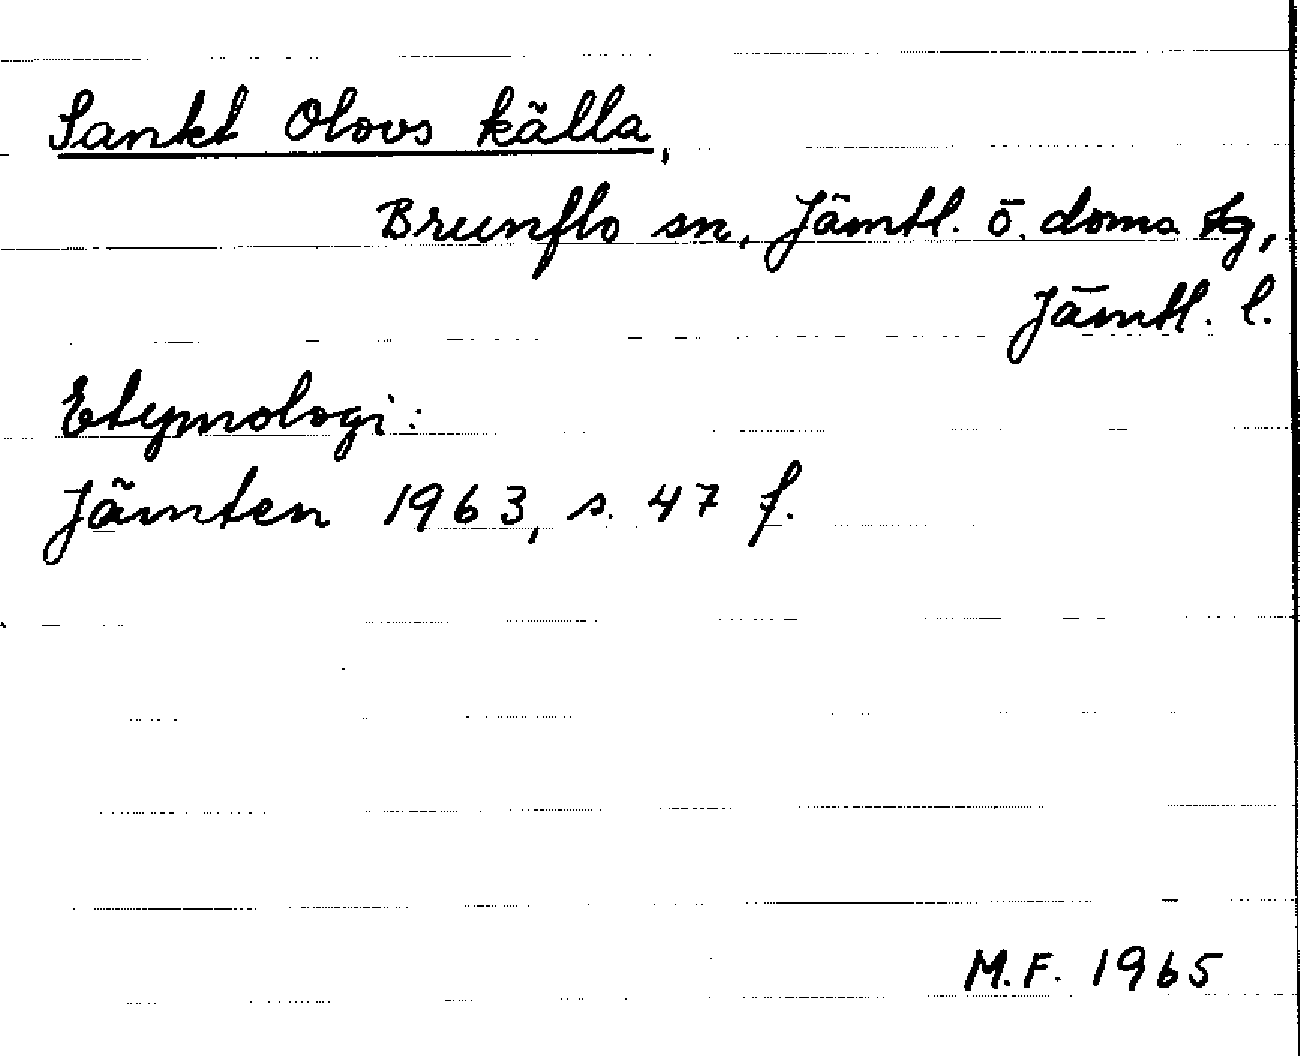 Sankt Olovs källa,
Brunflo sn, Jämtl. ö. doms tg,
Jämtl. l.
Etymologi:
Jämten 1963, s. 47 f.
M.F. 1965